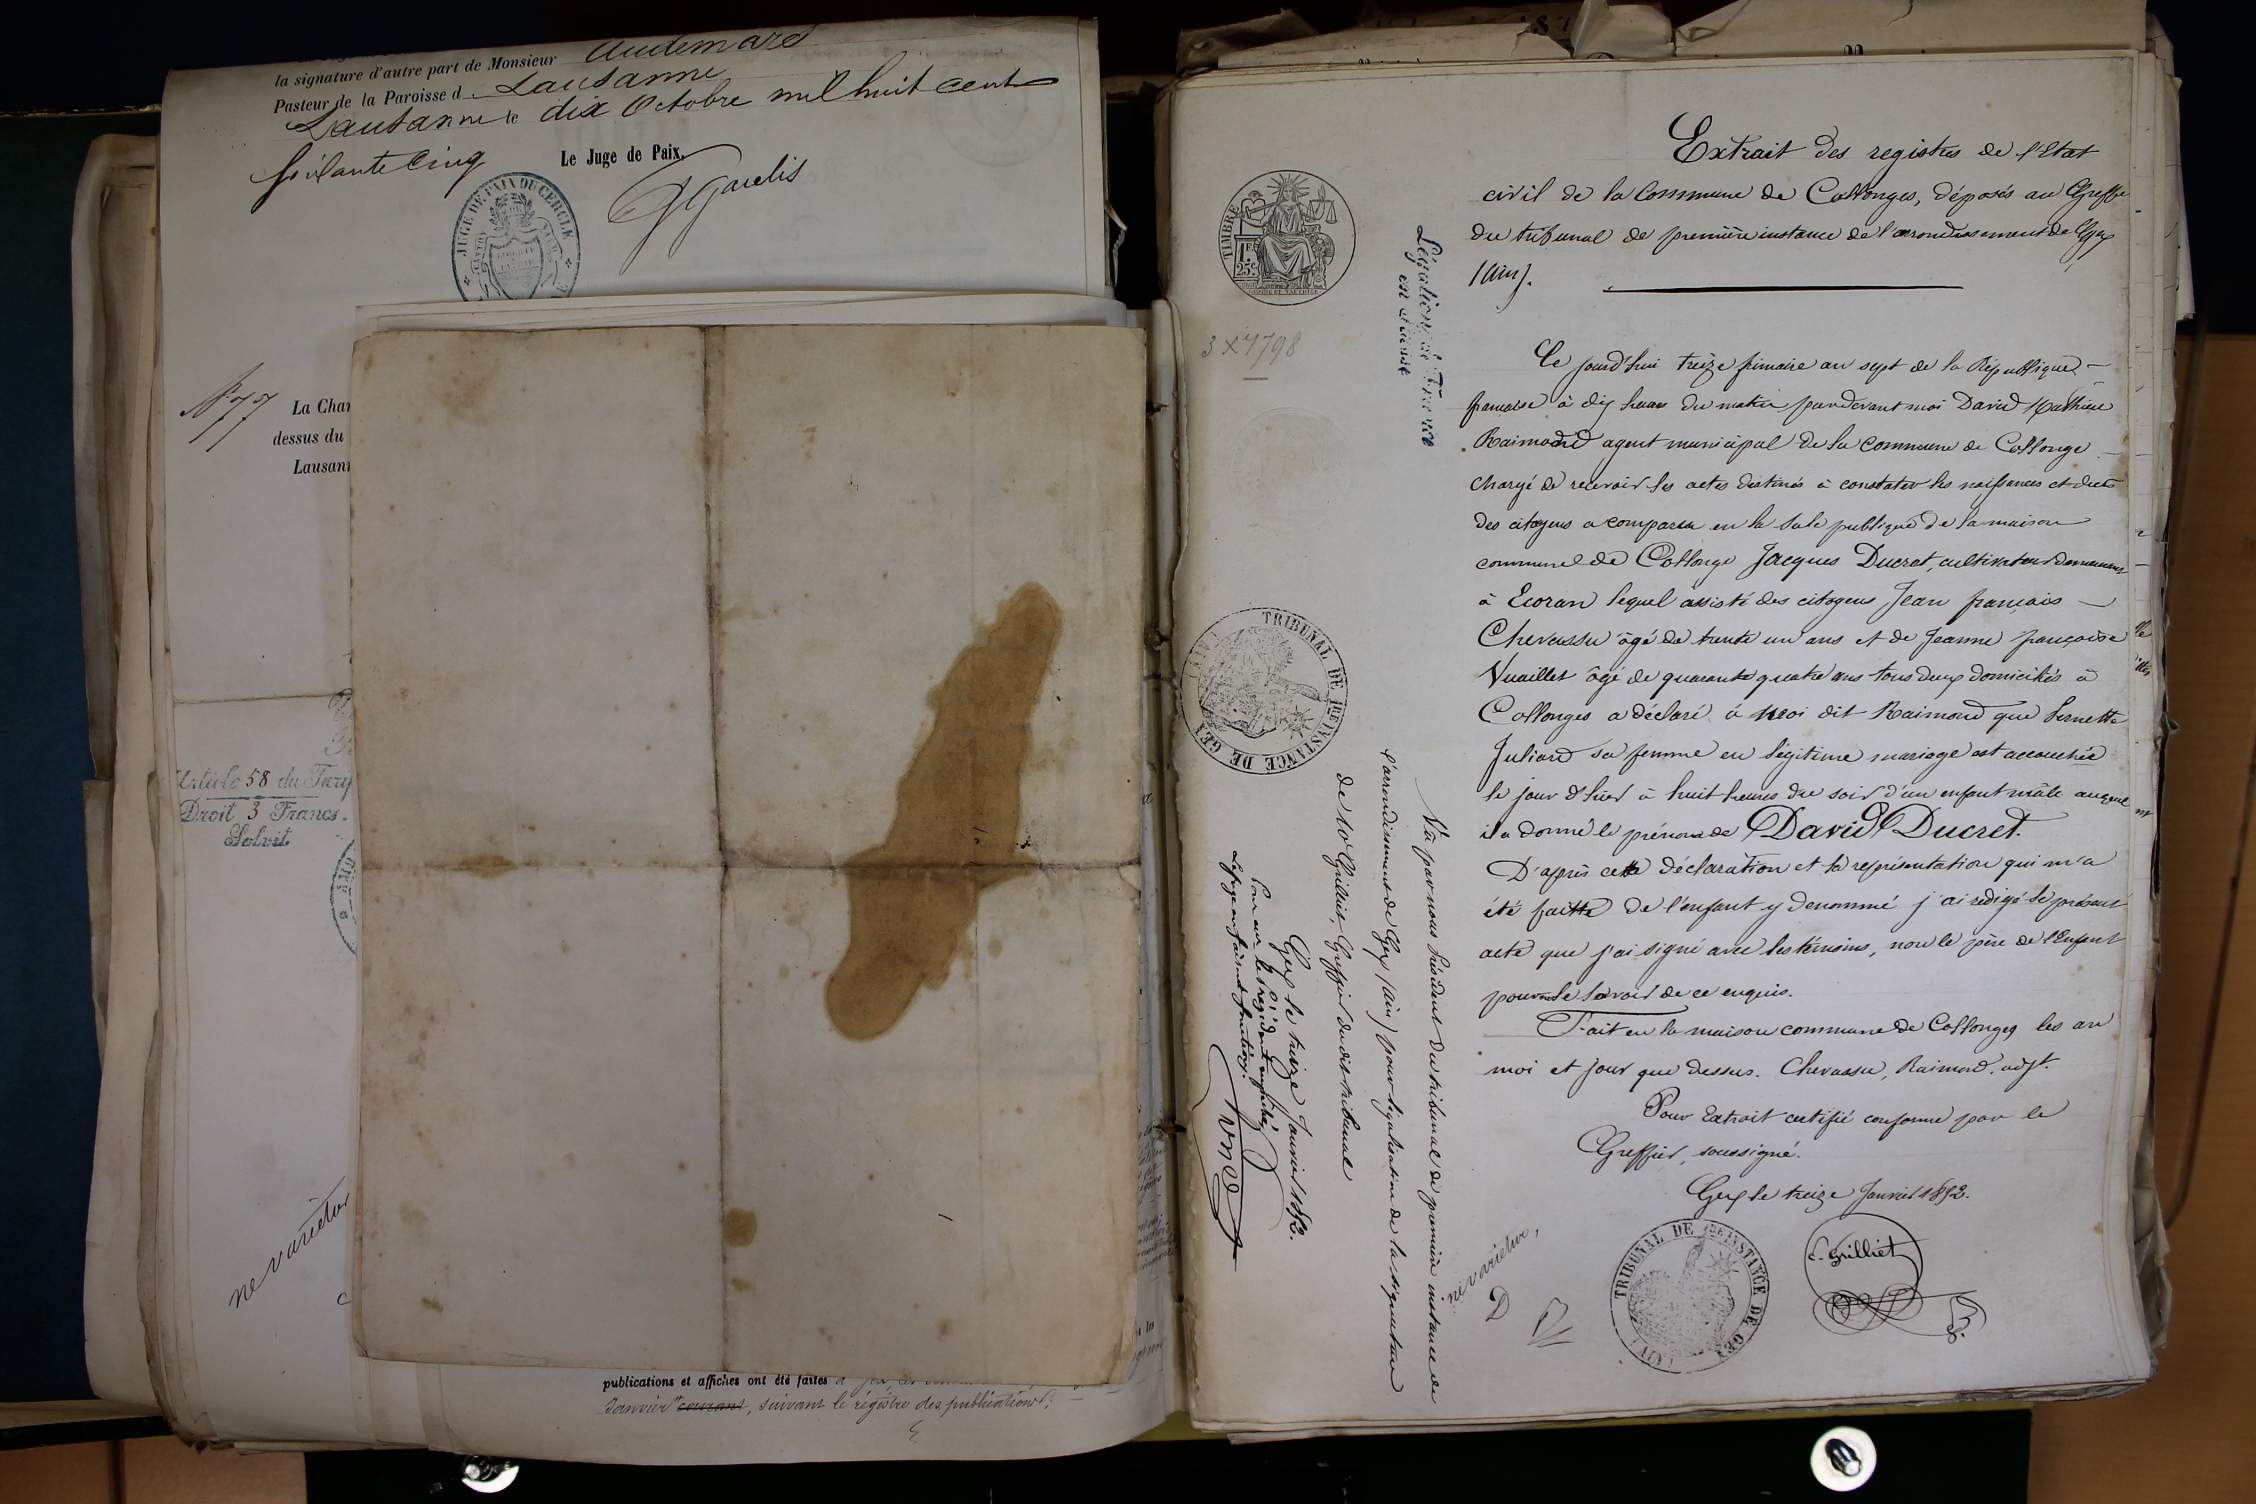 la signature d'autre part de Monsieur Audemars
Pasteur de la Paroisse d Lausanne
Lausanne le dix Octobre mil huit cent
soixante cinq
Le Juge de Paix,
JUGE DE PAIX DU CERCLE
LIBERTÉ
PATRIE
N° 77
La Chan
dessus du
Lausann
Article 58 du Tarif
Droit 3 Francs.
Solvit
ne varietur
publications et affiches ont été faites
Janvier courant, suivant le régistre des publications;
TIMBRE
1F
25c
3 Xr 1798
Légation de France
en Suisse
TRIBUNAL DE 1ERE INSTANCE DE GEX (AIN)
Extrait des registres de l'Etat
civil de la Commune de Collonges, déposés au Greffe
du tribunal de première instance de l'arrondissement de Gex
(Ain).
Ce jourd'hui treize frimaire an sept de la République
française à dix heures du matin pardevant moi David Mathieu
Raimond agent municipal de la Commune de Collonge
chargé de recevoir les actes destinés à constater les naissances et décès
des citoyens a comparu en la sale publique de la maison
commune de Collonge Jacques Ducret, cultivateur demeurant
à Ecoran lequel assisté des citoyens Jean françois
Chevassu âgé de trente un ans et de Jeanne françoise
Vuaillet âgé de quarante quatre ans tous deux domiciliés à
Collonges a déclaré à moi dit Raimond que Pernette
Juliard sa femme en légitime mariage est accouchée
le jour d'hier à huit heures du soir d'un enfant mâle auquel
il a donné le prénom de David Ducret.
D'après cette déclaration et la représentation qui m'a
été faitte de l'enfant y denommé j'ai redigé le présent
acte que j'ai signé avec les témoins, non le père de l'Enfant
pour ne le savoir de ce enquis.
Fait en la maison commune de Collonges les an
moi et jour que dessus. Chevassu, Raimond, adjt.
Pour Extrait certifié conforme par le
Greffier, soussigné.
Gex le treize Janvier 1852.
C. Grilliet
TRIBUNAL DE 1ERE INSTANCE DE GEX (AIN)
ne varietur,
D
Vû par nous Président du tribunal de première instance de
l'arrondissement de Gex (ain) pour légalisation de la signature
de Me Grilliet, Greffier du dit tribunal
Gex le treize Janvier 1852.
Pour Mr le Président empêché,
Le Juge en faisant fonctions.